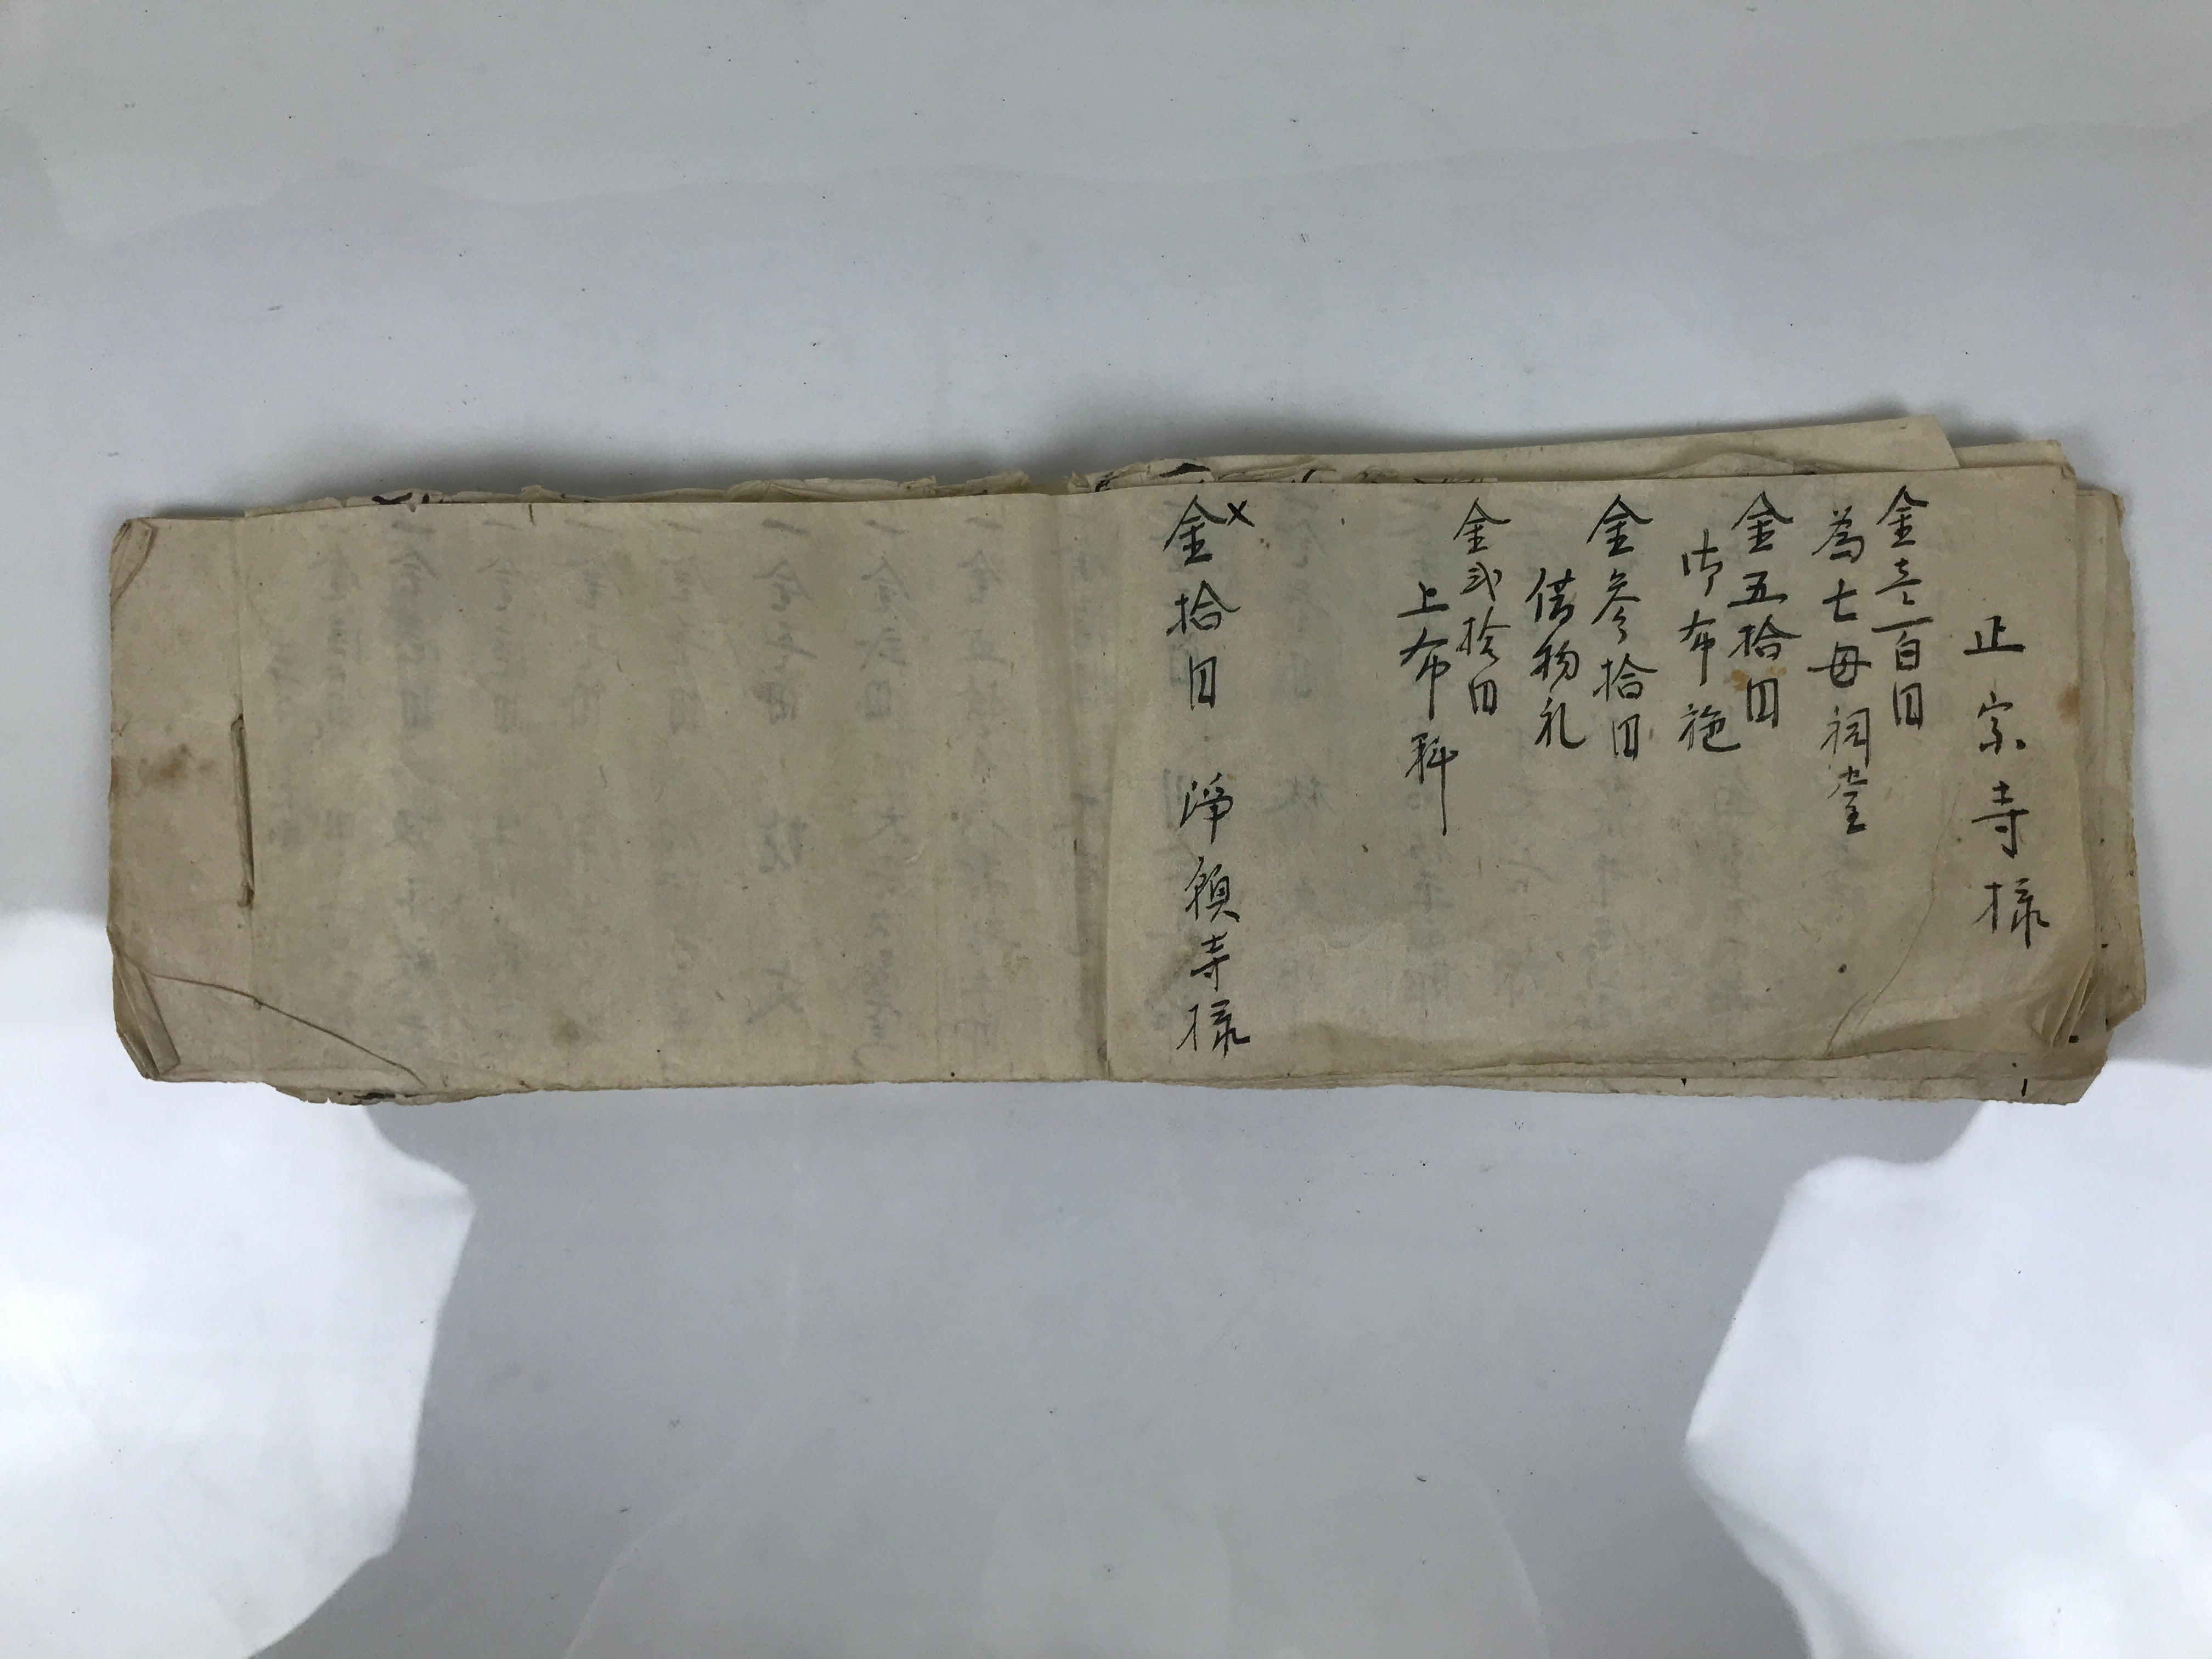 正宗寺様
金壱百円
為亡母祠堂
金五拾円
御布施
金参拾円
借物礼
金弐拾円
上布料
×
金拾円 浄願寺様